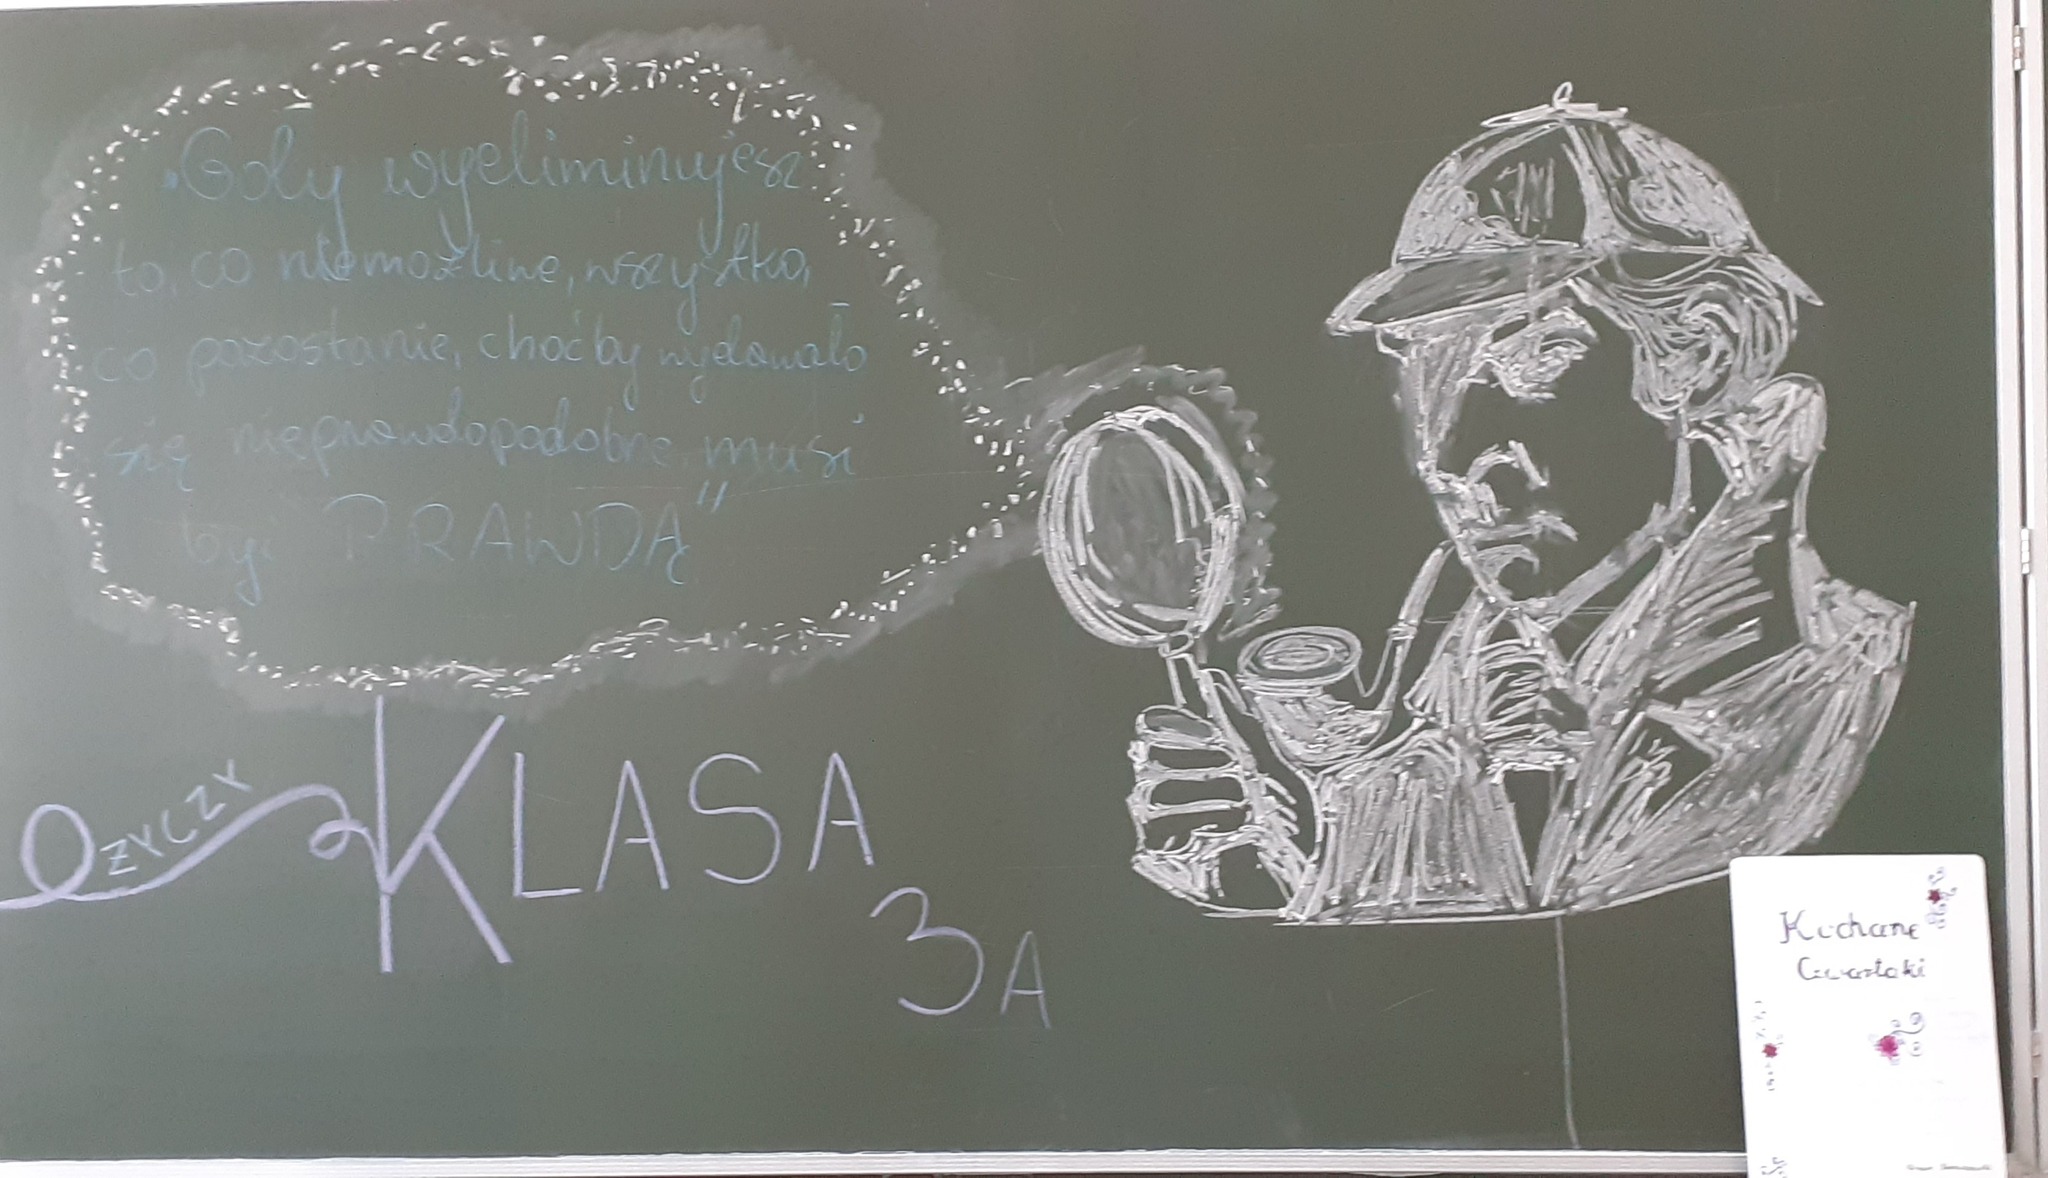 „Gdy wyeliminujesz
to, co niemożliwe, wszystko,
co pozostanie, choćby wydawało
się nieprawdopodobne, musi
być PRAWDĄ”
ZYCZY
KLASA
3A
Kochane
Czwartaki